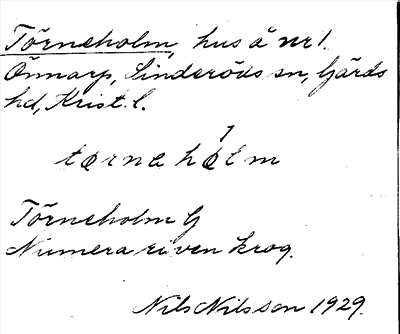 Törneholm, hus å nr 1.
Önnarp, Linderöds sn, Gärds
hd, Krist. l.
tœrnehólm
Törneholm G
Numera riven krog.
Nils Nilsson 1929.